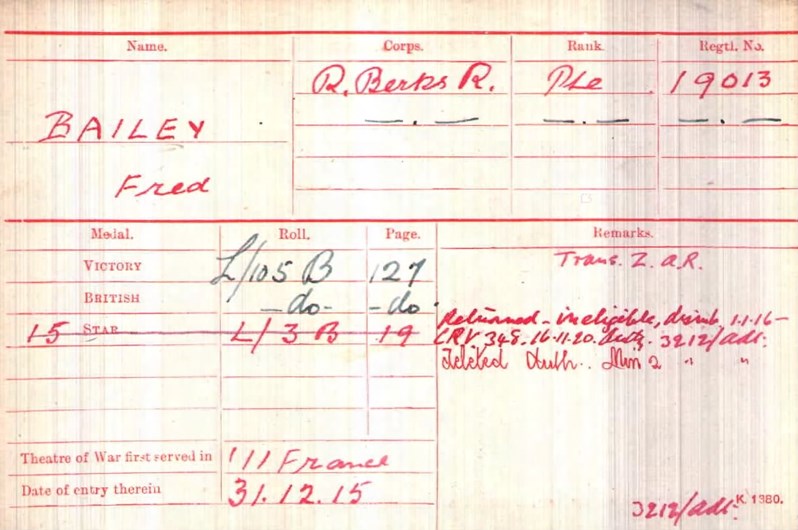 Name. Corps. Rank. Regtl. No.
R. Berks R. Pte 19013
BAILEY — . — — . — — . —
Fred
Medal. Roll. Page. Remarks.
VICTORY L/105 B 127 Trans. Z. a.R.
BRITISH -do- -do-
15 STAR L/3 B 19 Returned - ineligible, disemb 1.1.16 -
CRV 348. 16.11.20. 3212/adt.
Deleted Auth. 2 " "
Theatre of War first served in '11 France
Date of entry therein 31.12.15
3212/adt. K. 1380.